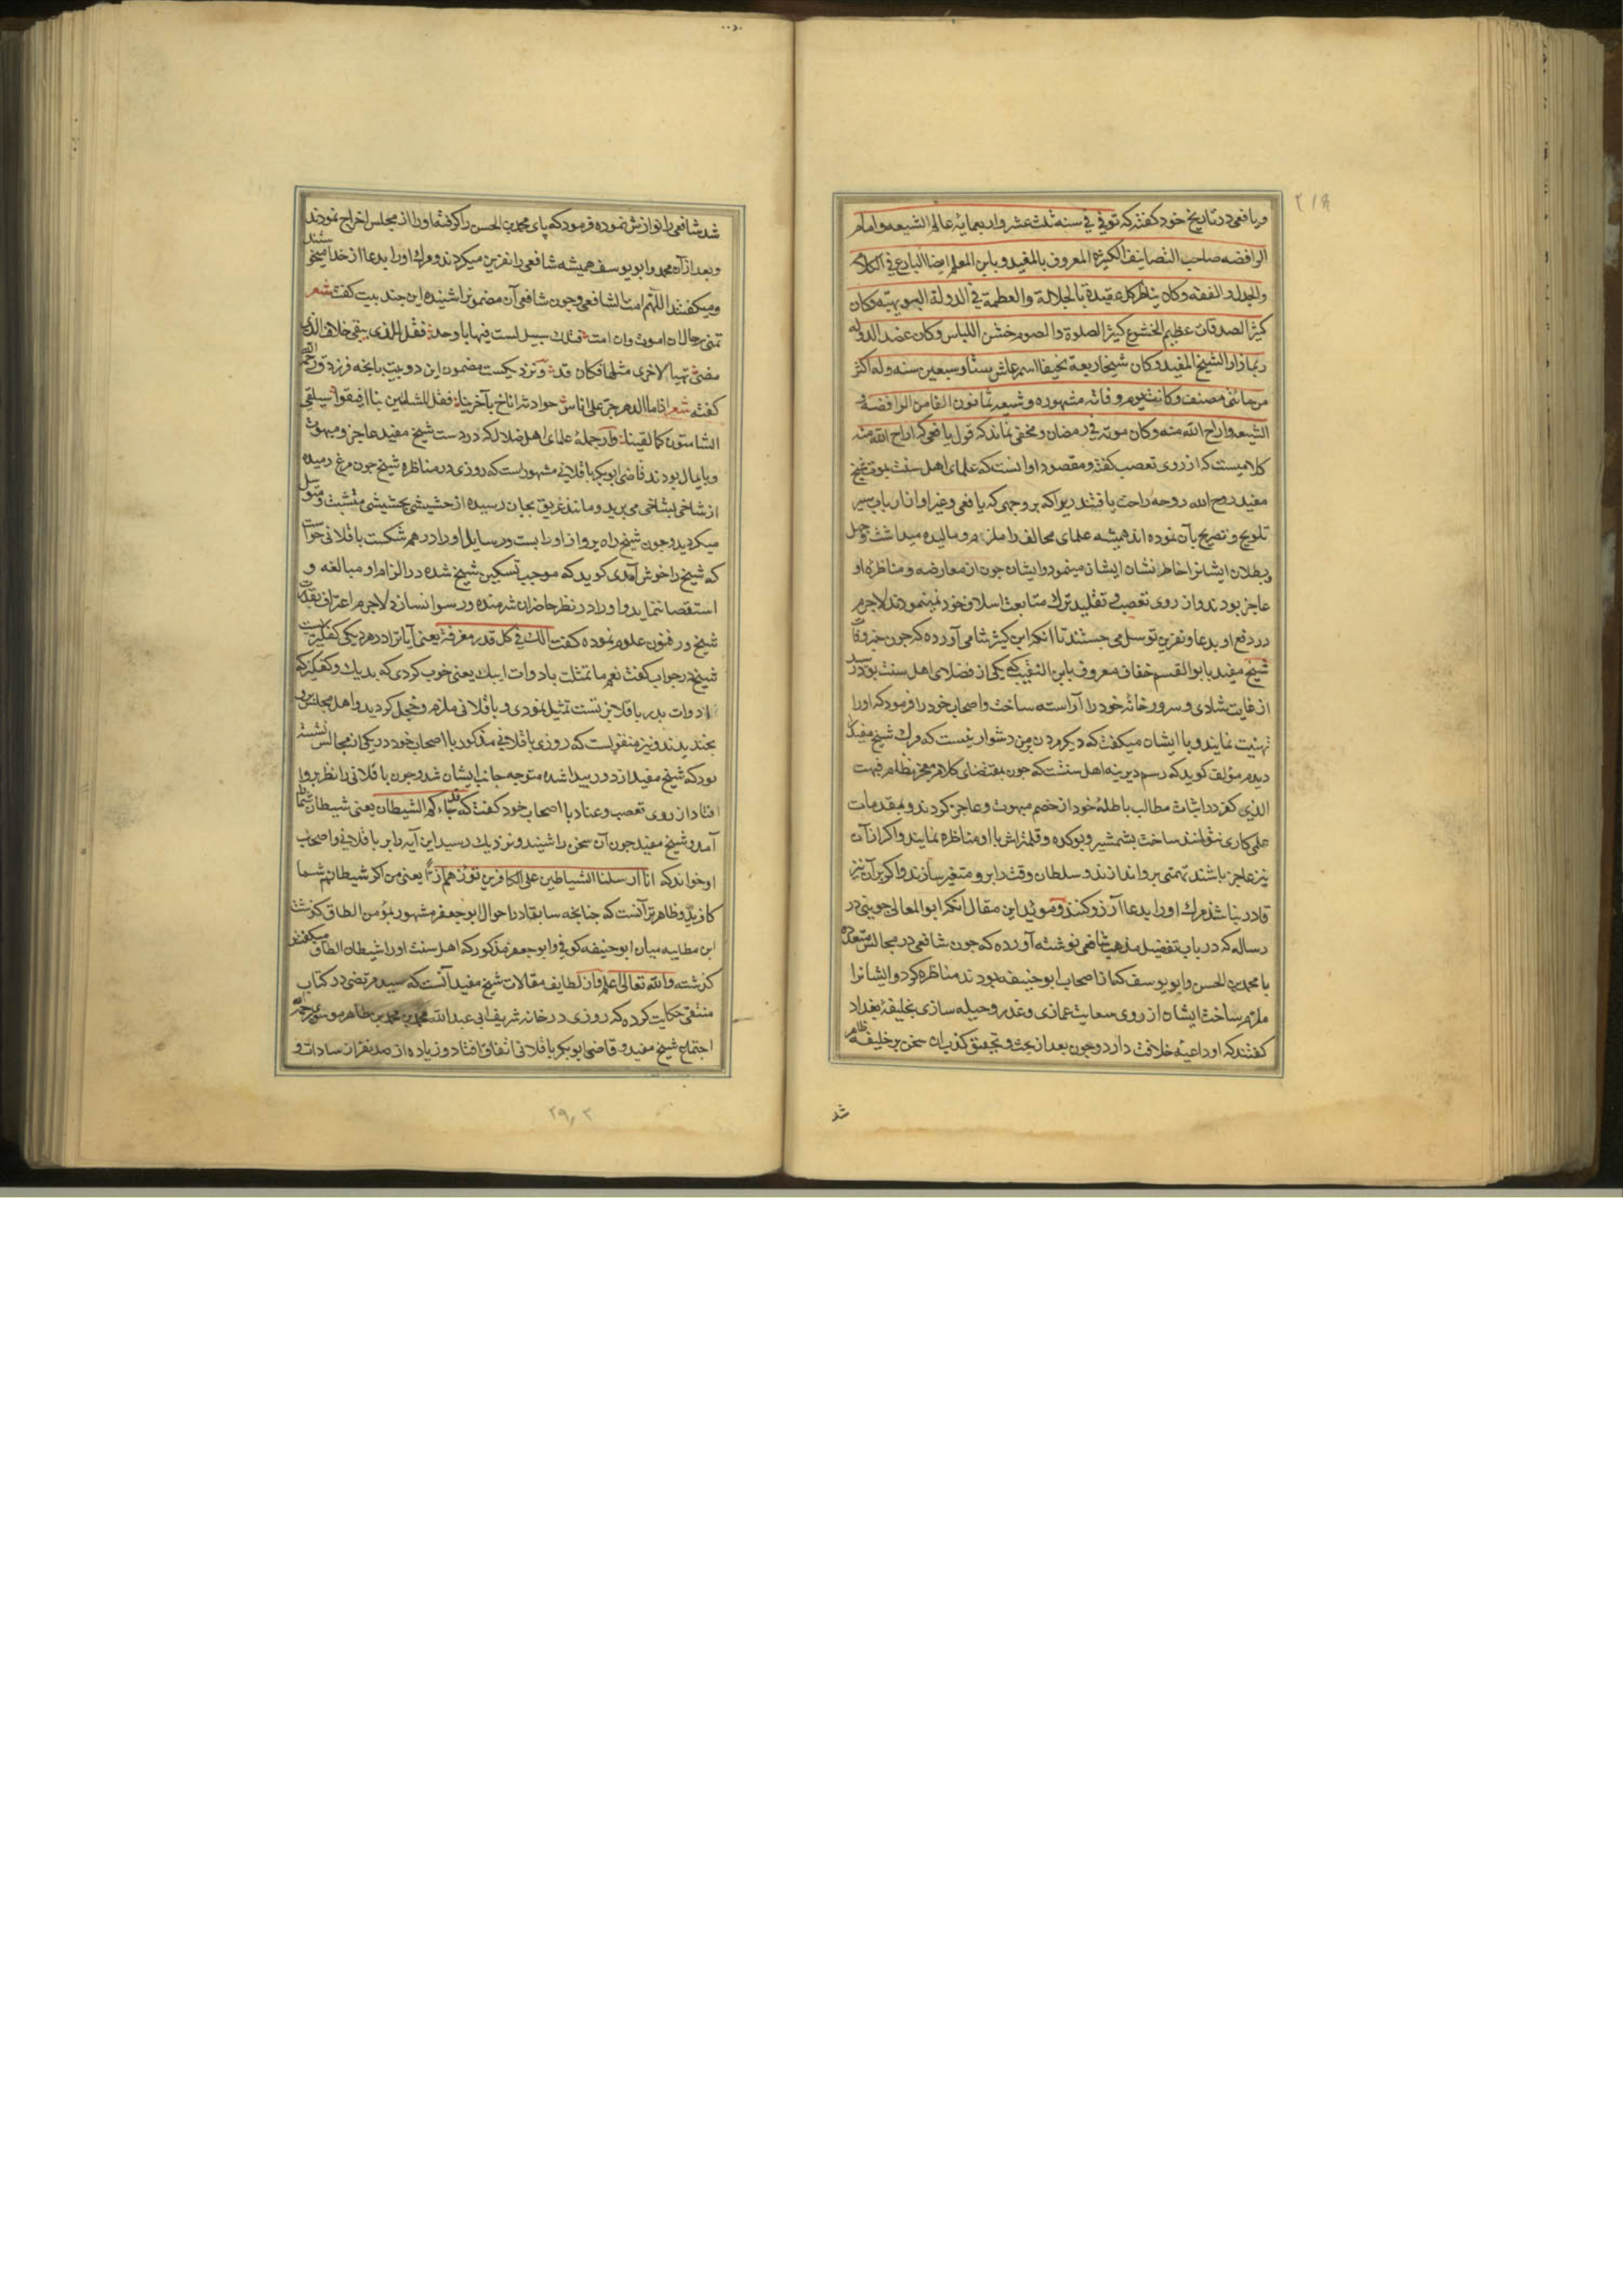 ۲۱۹
ویافعی در تاریخ خود کفته که توفی فی سنه ثلث عشر واربعمایه عالم الشیعه وامام
الرافضه صاحب التصانیف الکثیرة المعروف بالمفید وبابن المعلم ایضا البارع فی الکلام
والجدل والفقه وکان یناظر کل عقیدة بالجلالة والعظمة فی الدولة البویهیه وکان
کثیر الصدقات عظیم الخشوع کثیر الصلوة والصوم خشن اللباس وکان عضد الدوله
ربما زار الشیخ المفید وکان شیخا ربعة نحیفا اسمر عاش ستا وسبعین سنه وله اکثر
من مائتی مصنف وکانت یوم وفاته مشهوره وشیعه ثمانون الفا من الرافضه و
الشیعه واراح الله منه وکان موته فی رمضان ومخفی نماند که قول یافعی که اراح الله منه
کلامیست که از روی تعصب کفته ومقصود او انست که علمای اهل سنت بموت شیخ
مفید روح الله روحه راحت یافتند زیرا که بر وجهی که یافعی وغیر او از ارباب سیر
تلویح وتصریح بآن نموده اند همیشه علمای مخالف را ملزم ومالیده میداشت وجهل
وبطلان ایشانرا خاطر نشان ایشان مینمود وایشان چون از معارضه ومناظره او
عاجز بودند واز روی تعصب وتقلید ترک متابعت اسلاف خود نمینمودند لاجرم
در دفع او بدعا ونفرین توسل می جستند تا انکه ابن کثیر شامی آورده که چون خبر وفات
شیخ مفید بابو القسم خفاف معروف بابن النقیب که یکی از فضلای اهل سنت بود رسید
از غایت شادی وسرور خانه خود را آراسته ساخت واصحاب خود را فرمود که اورا
تهنیت نمایند وبا ایشان میکفت که دیکر مردن بر من دشوار نیست که مرک شیخ مفید
دیدم مؤلف کوید که رسم دیرینه اهل سنتست که چون بمقتضای کلام معجز نظام فبهت
الذی کفر در اثبات مطالب باطلهٔ خود از خصم مبهوت وعاجز کردند وبمقدمات
علمی کاری نتوانند ساخت بشمشیر وبوکده وقلمتراش با او مناظره نمایند واکر از آن
نیز عاجز باشند تهمتی بر او اندازند وسلطان وقت را بر او متغیر سازند واکر بر آن نیز
قادر نباشند مرک اورا بدعا آرزو کنند وموید این مقال انکه ابو المعالی جوینی در
رساله که در باب تفضیل مذهب شافعی نوشته آورده که چون شافعی در مجالس متعدده
با محمد بن الحسن وابو یوسف که از اصحاب ابو حنیفه بودند مناظره کرد وایشانرا
ملزم ساخت ایشان از روی سعایت وغمازی وغدر وحیله سازی بخلیفهٔ بغداد
کفتند که او داعیه خلافت دارد وچون بعد از بحث وتحقیق کذب ان سخن بر خلیفه ظاهر
شد
شد شافعی را نوازش نموده فرمود که پای محمد بن الحسن را کرفته اورا از مجلس اخراج نمودند
وبعد از آن محمد وابو یوسف همیشه شافعی را نفرین میکردند ومرک اورا بدعا از خدا میخواستند
ومیکفتند اللهم امت الشافعی وچون شافعی آن مضمون را شنیده این چند بیت کفت شعر
تمنی رجال ان اموت وان امت فتلک سبیل لست فیها باوحد فقل للذی یبقی خلاف الذی
مضی تهیا لاخری مثلها فکان قد ونزدیکست مضمون این دو بیت بانچه فرزدق
کفته شعر اذا ما الدهر جر علی اناس حوادثه اناخ بآخرینا فقل للشامتین بنا افیقوا سیلقی
الشامتون کما لقینا واز جملهٔ علمای اهل ضلال که در دست شیخ مفید عاجز ومبهوت
وپایمال بودند قاضی ابو بکر باقلانی مشهور است که روزی در مناظره شیخ چون مرغ رمیده
از شاخی بشاخی می پرید ومانند غریق بجان رسیده از حشیشی بحشیشی متشبث ومتوسل
میکردید وچون شیخ راه پرواز اورا بست ورسایل اورا در هم شکست باقلانی خواست
که شیخ را خوش آمدی کوید که موجب تسکین شیخ شده در الزام او مبالغه و
استقصا ننماید واورا در نظر حاضران شرمنده ورسوا نسازد لاجرم اعتراف بقدرت
شیخ در فنون علوم نموده کفت الک فی کل قدر مغرفة یعنی آیا ترا در هر دیکی کفکیریست
شیخ در جواب کفت نعم ما تمثلت بادوات ابیک یعنی خوب کردی که بدیک وکفکیر که
از ادوات پدر باقلا پز تست تمثیل نمودی وباقلانی ملزم وخجل کردید واهل مجلس برو
بخندیدند ونیز منقولست که روزی باقلانی مذکور با اصحاب خود در یکی از مجالس نشسته
بود که شیخ مفید از دور پیدا شده متوجه جانب ایشان شد وچون باقلانی را نظر برو
افتاد از روی تعصب وعناد با اصحاب خود کفت که قد جاءکم الشیطان یعنی شیطان شما
آمد وشیخ مفید چون آن سخن را شنید ونزدیک رسید این آیه را بر باقلانی واصحاب
او خواند که انا ارسلنا الشیاطین علی الکافرین تؤزهم ازّا یعنی من اکر شیطانم شما
کافرید وظاهر تر آنست که چنانچه سابقا در احوال ابو جعفر مشهور بمؤمن الطاق کذشت
این مطایبه میان ابو حنیفه کوفی وابو جعفر مذکور که اهل سنت اورا شیطان الطاق میکفتند
کذشته والله تعالی اعلم واز لطایف مقالات شیخ مفید آنست که سید مرتضی در کتاب
منتقی حکایت کرده که روزی در خانه شریف ابی عبد الله محمد بن محمد بن طاهر موسوی رحمه الله
اجتماع شیخ مفید وقاضی ابو بکر باقلانی اتفاق افتاد وزیاده از صد نفر از سادات و